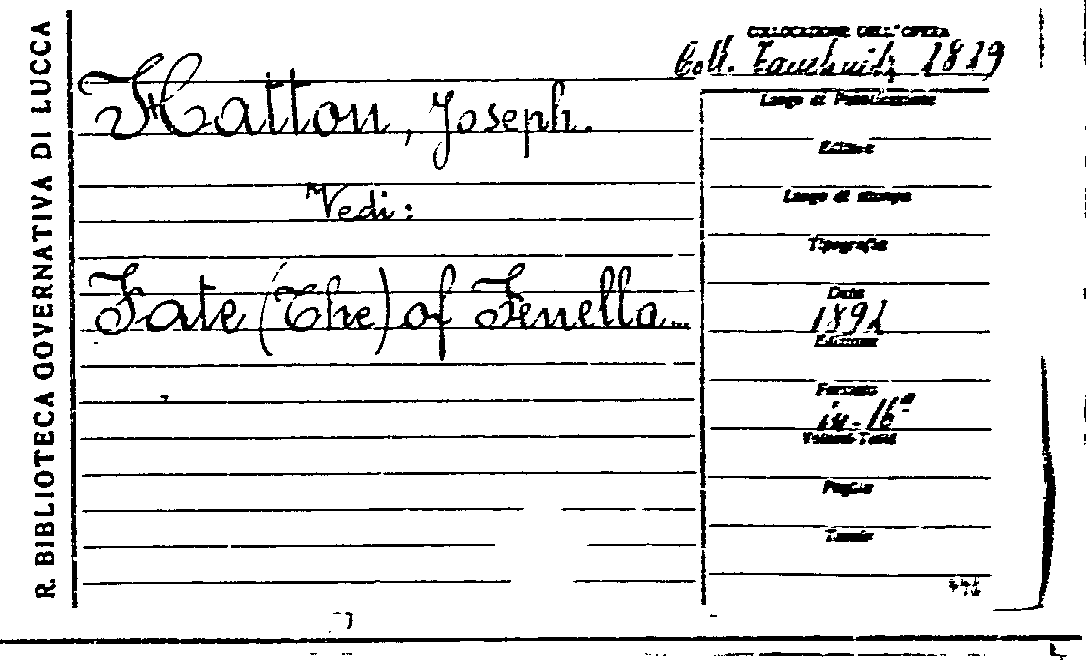 R. BIBLIOTECA GOVERNATIVA DI LUCCA
COLLOCAZIONE DELL'OPERA
Coll. Tauchnitz 1819
Hatton, Joseph.
Vedi:
Fate (The) of Fenella...
Luogo di Pubblicazione
Editore
Luogo di stampa
Tipografia
Data
1892
Edizione
Formato
in-16°
Volumi-Tomi
Pagine
Tavole